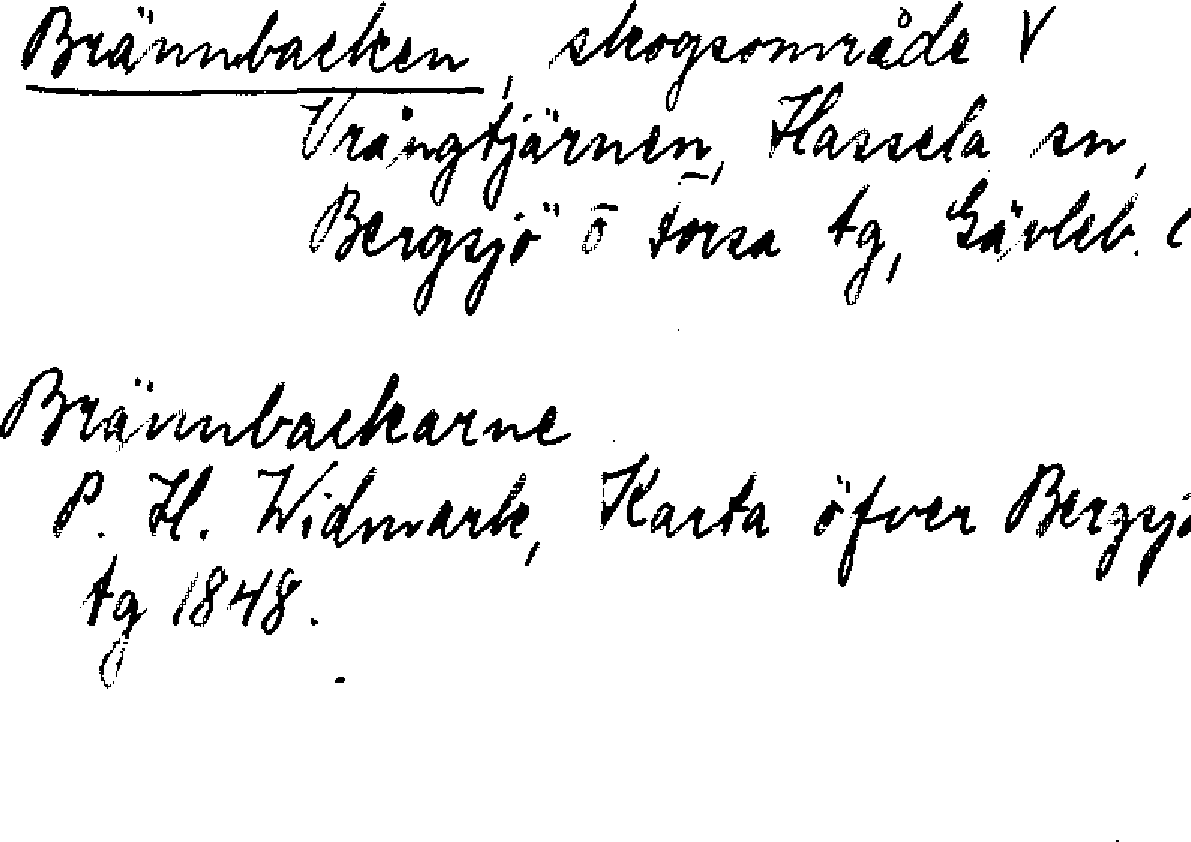 Brännbacken, skogsområde V
Vrångtjärnen, Hassela sn,
Bergsjö o Forsa tg, Gävleb.
Brännbackarne
P. H. Widmark, Karta öfver Bergsjö
tg 1848.